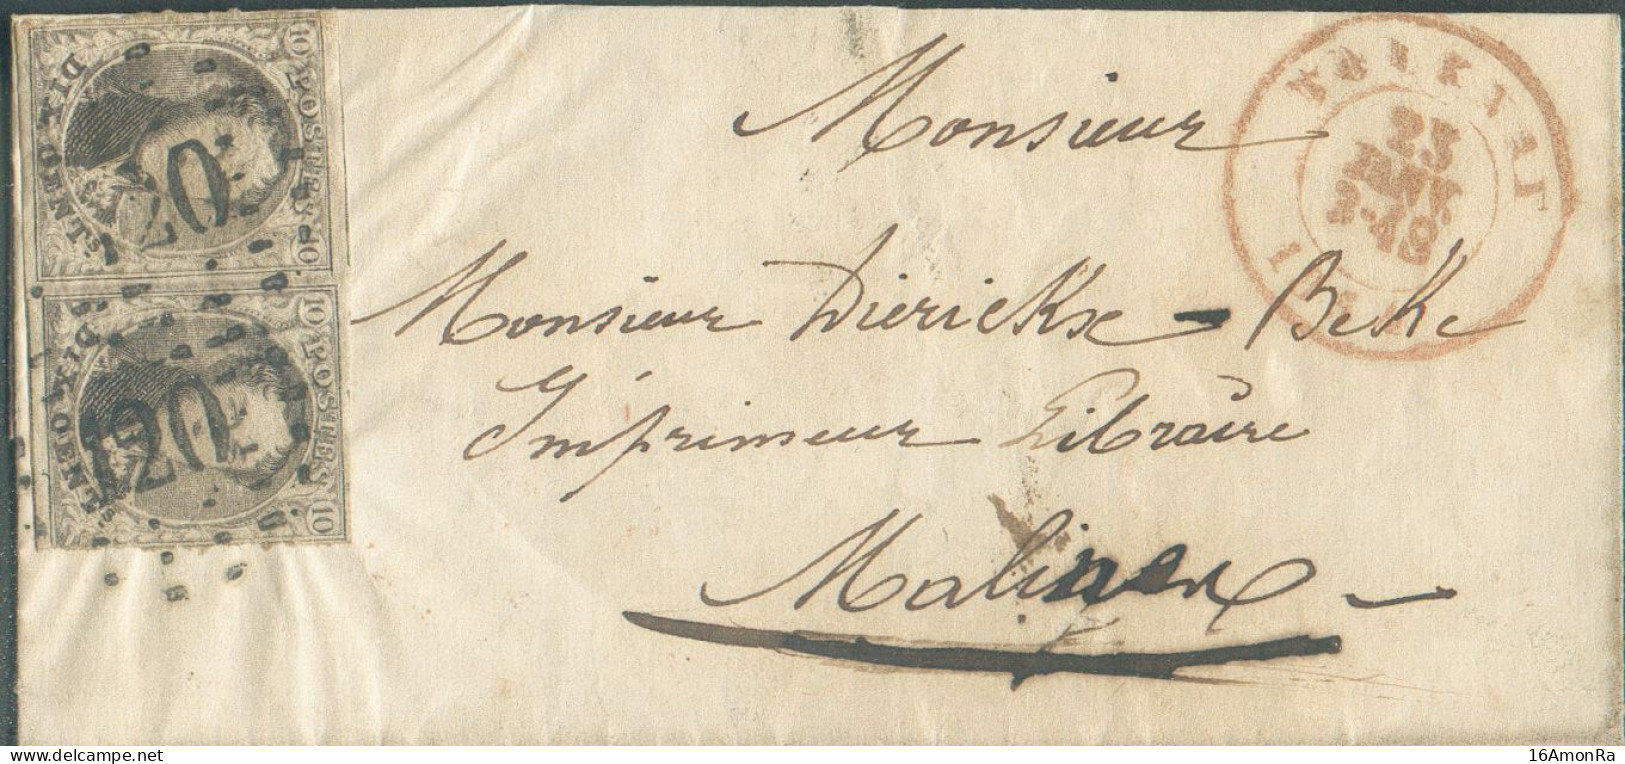 10 POSTES 10
DIX CENTS
120
10 POSTES 10
DIX CENTS
120
23
JANV
Monsieur
Monsieur Dierickx-Beke
Imprimeur Libraire
Malines
16AmonRa